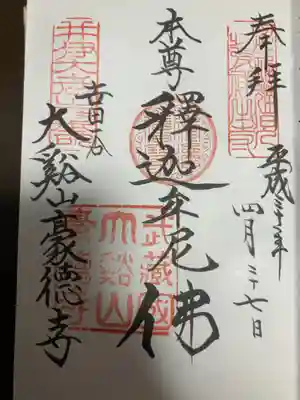 奉拝
平成三十一年
四月二十七日
本尊
釋迦牟尼佛
世田谷
大谿山豪德寺
武藏國
大谿山
豪德寺